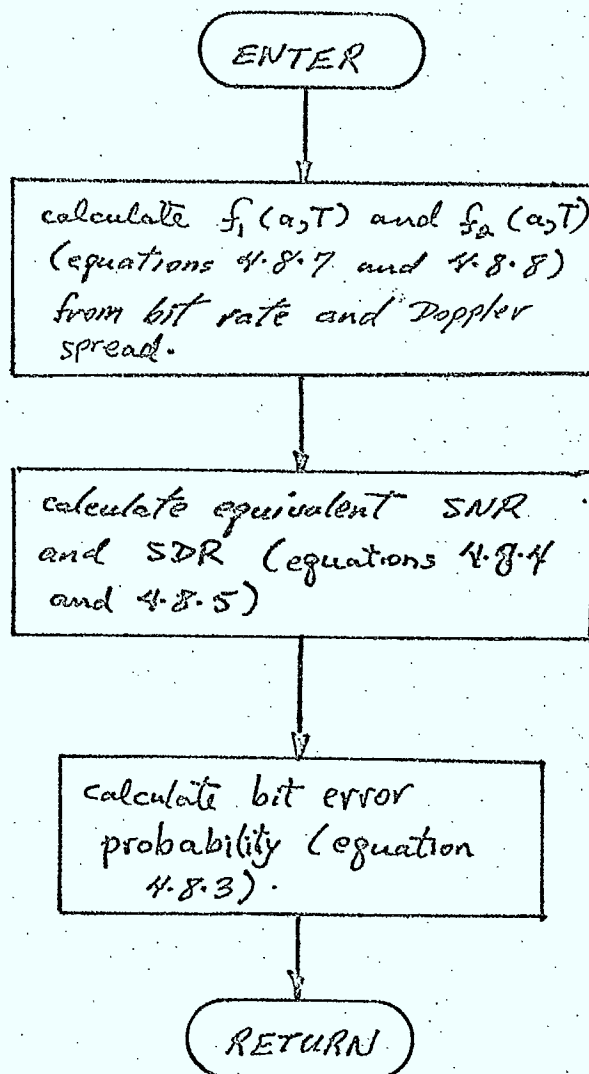 ENTER
calculate f₁(a,T) and f₂(a,T)
(equations 4.8.7 and 4.8.8)
from bit rate and Doppler
spread.
calculate equivalent SNR
and SDR (equations 4.8.4
and 4.8.5)
calculate bit error
probability (equation
4.8.3).
RETURN